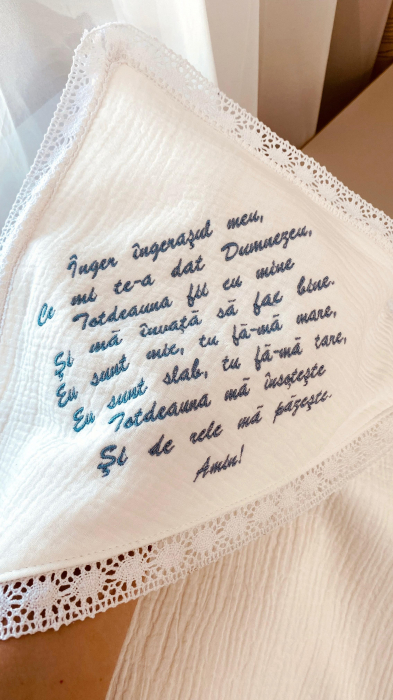 Înger îngerașul meu,
Ce mi te-a dat Dumnezeu,
Totdeauna fii cu mine
Și mă învață să fac bine.
Eu sunt mic, tu fă-mă mare,
Eu sunt slab, tu fă-mă tare,
Totdeauna mă însoțește
Și de rele mă păzește.
Amin!